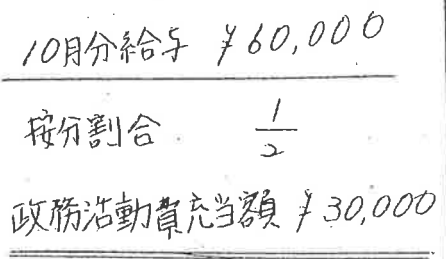 10月分給与 ¥60,000
按分割合 1/2
政務活動費充当額 ¥30,000